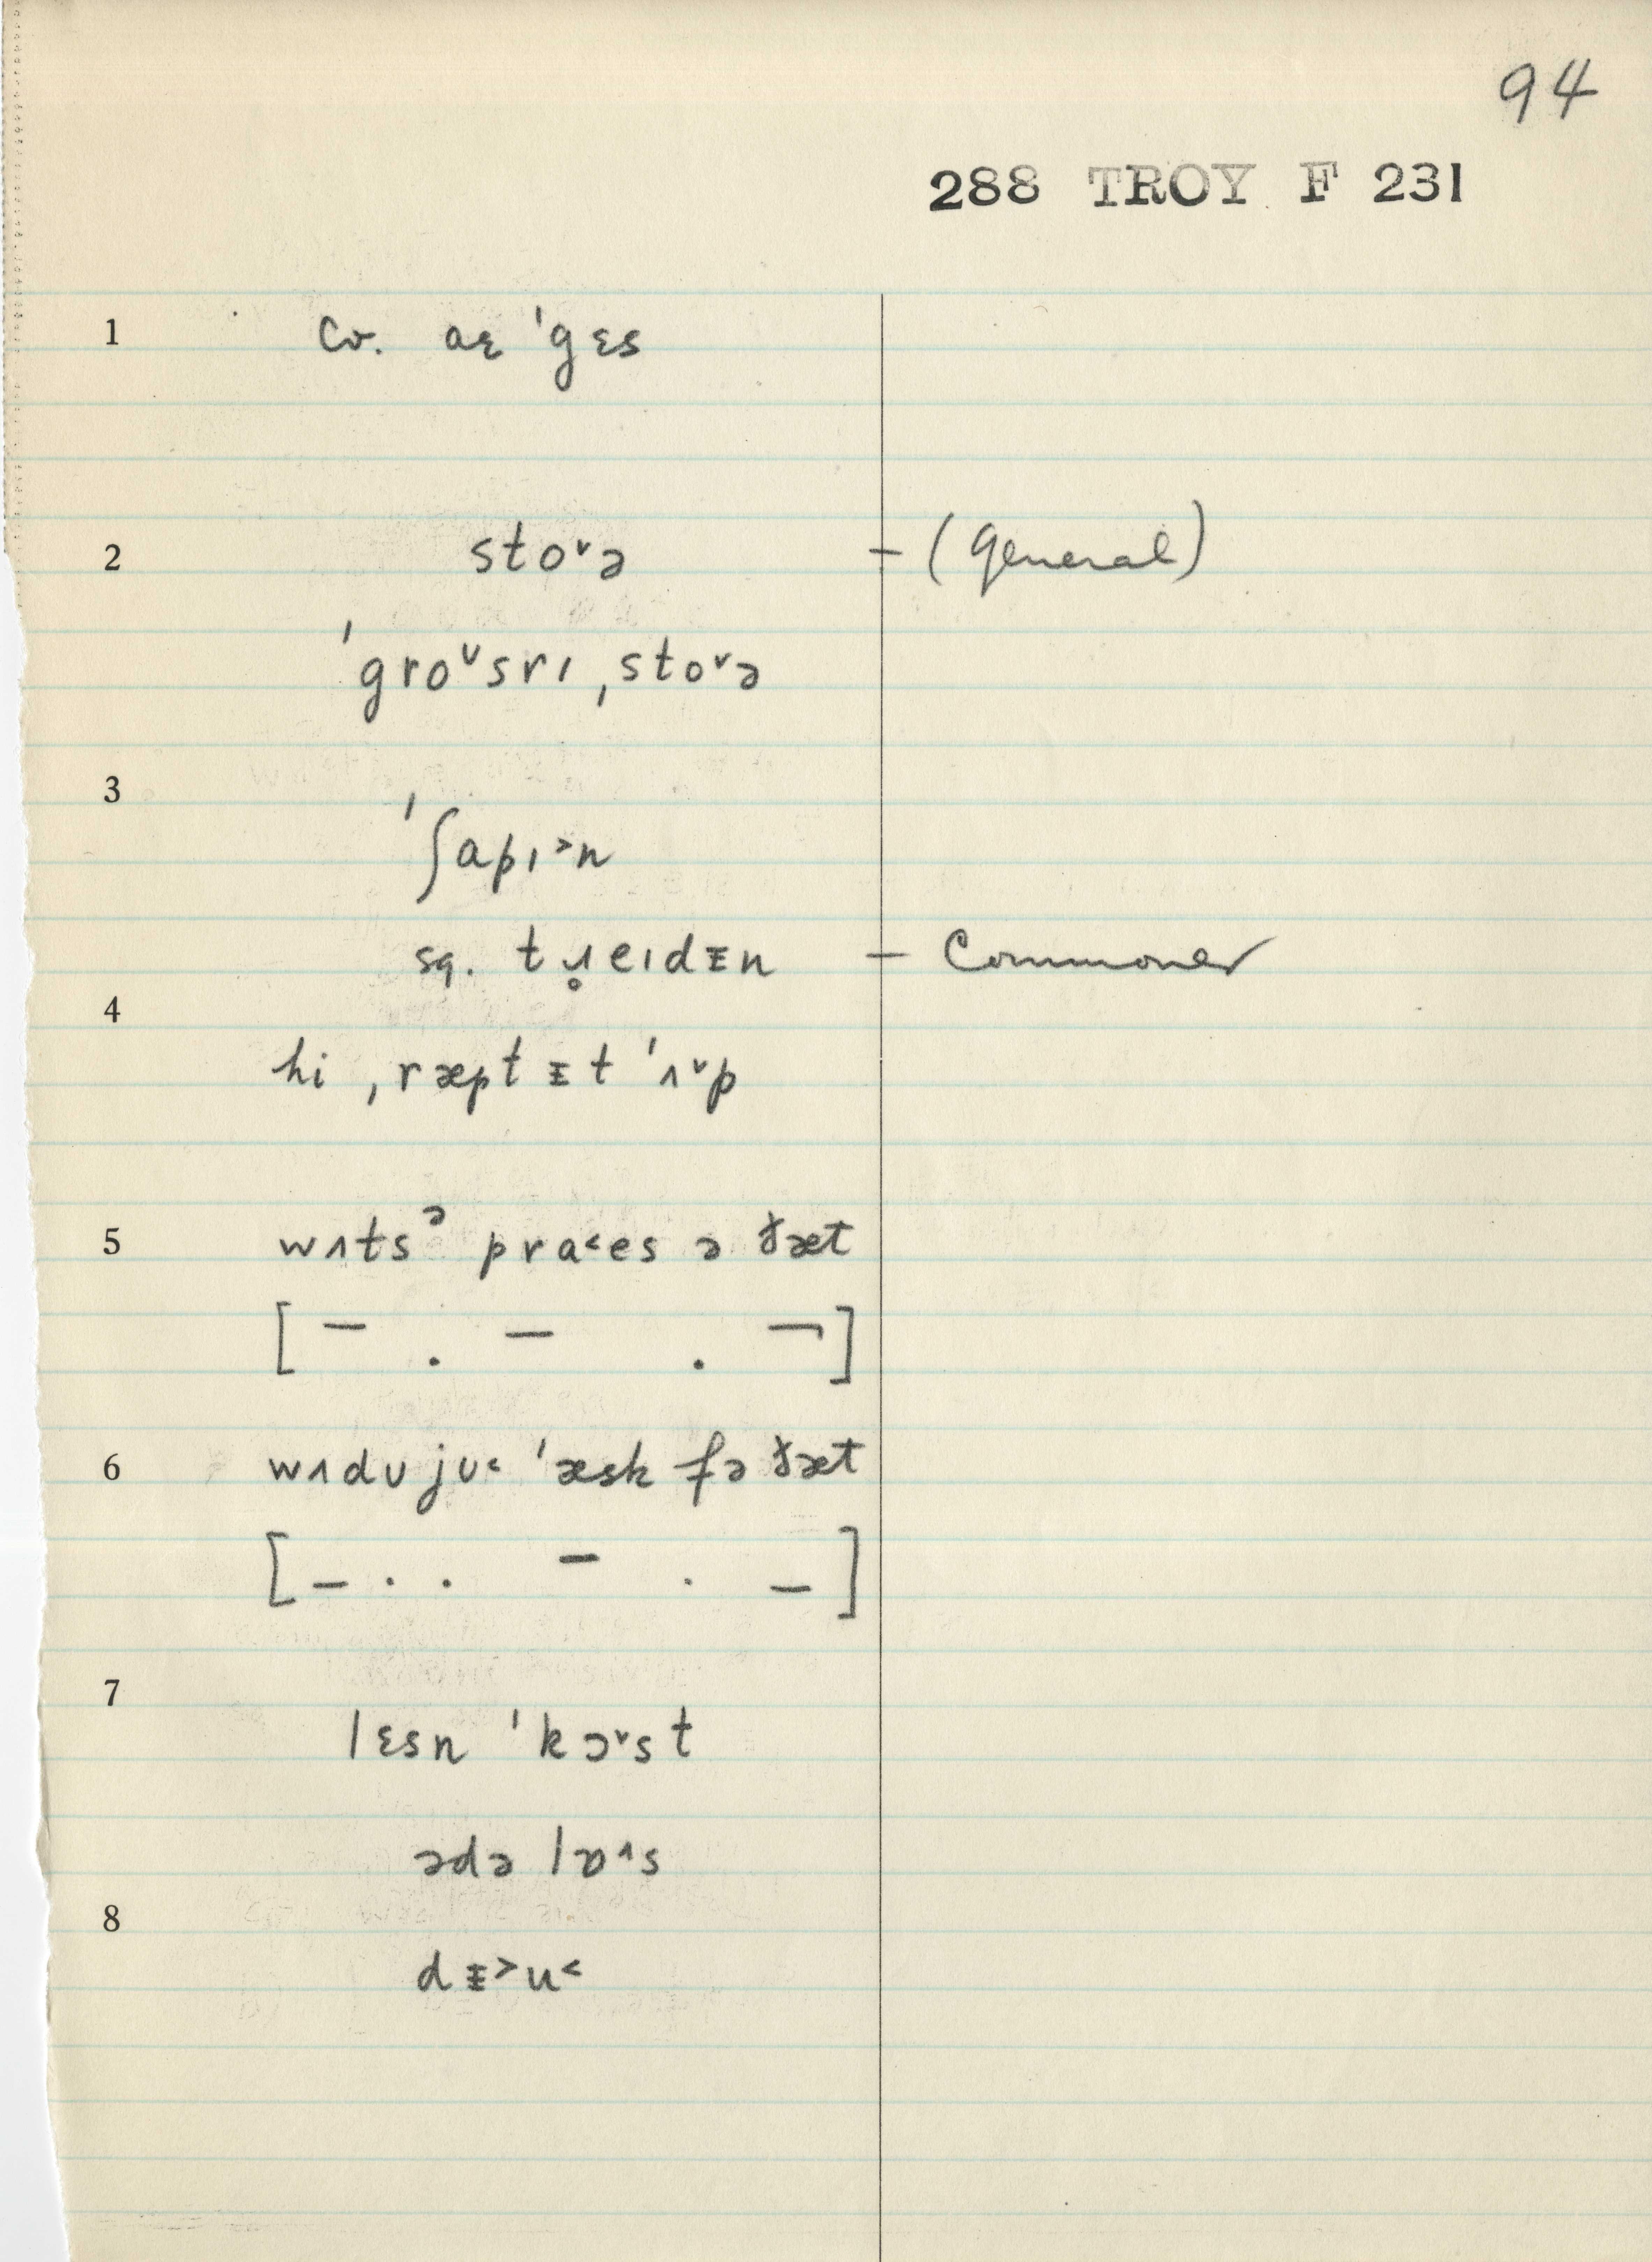 94
288 TROY F 231
1 cv. aɛ ˈgɛs
2 stoᵛə – (general)
ˈgroᴜsrɪ ˌstoᵛə
3 ˈʃapɪ˃n
sq. tɹ̥eɪdᵻn – Commoner
4 hi ˌræptᵻt ˈʌᵛp
5 wʌtsᵊ pra˂es ə ðæt
[ – . – . ¬ ]
6 wʌdᴜjᴜ˂ ˈæsk fə ðæt
[ – . . – . – ]
7 lɛsn ˈkɔᵛst
ədə lɒ^s
8 dᵻ˃u˂